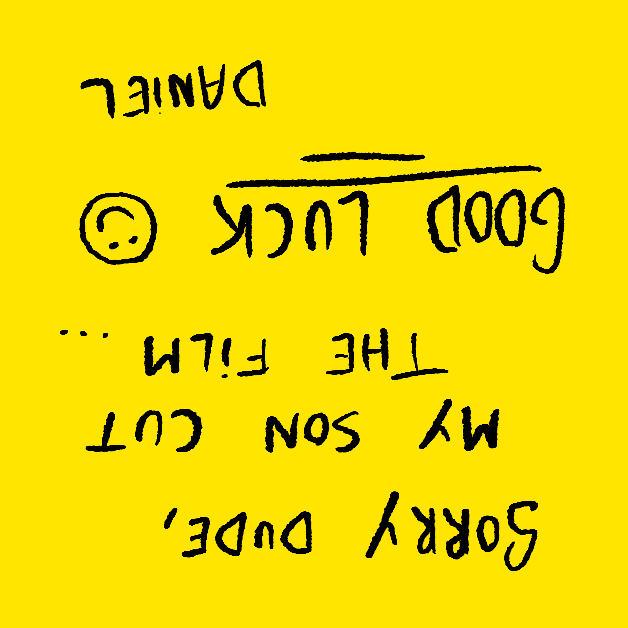 SORRY DUDE,
MY SON CUT
THE FiLM ...
GOOD LUCK
DANiEL